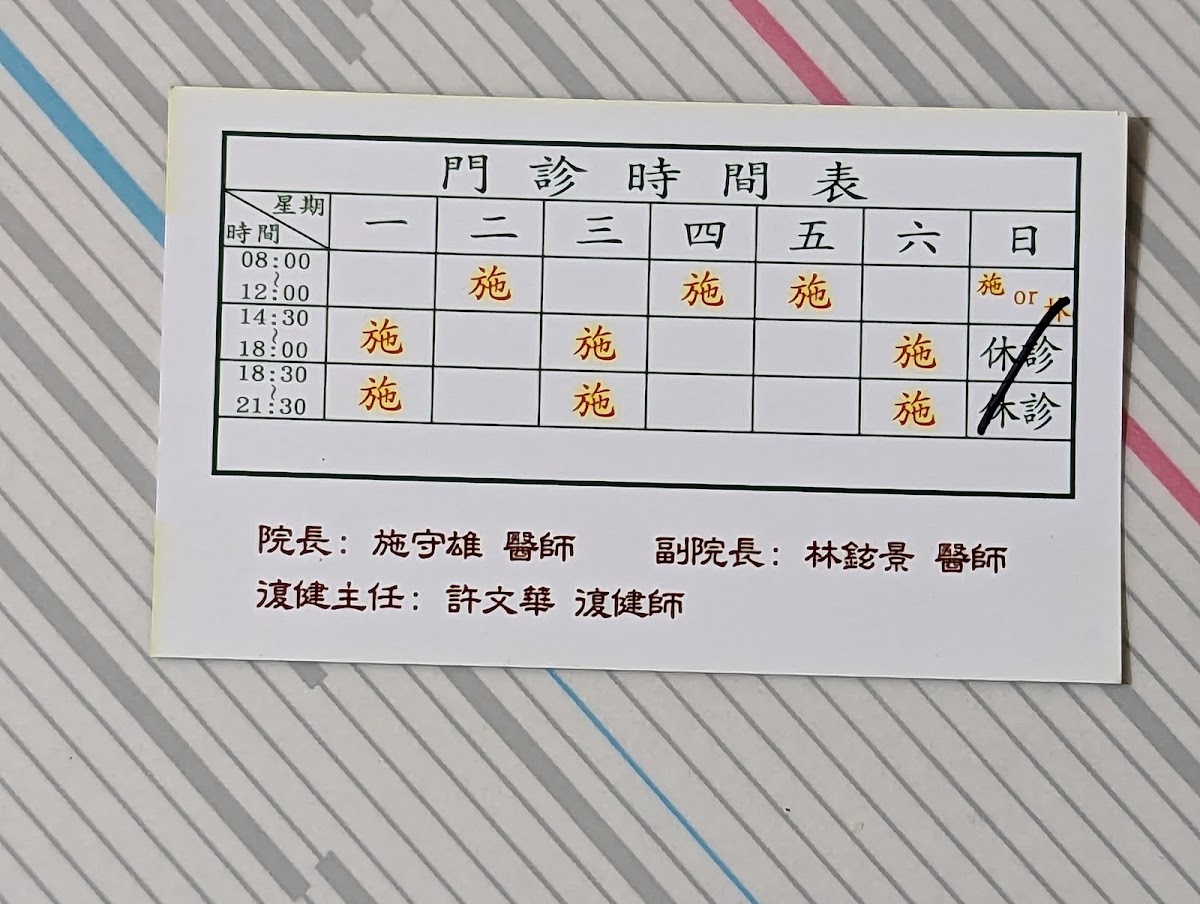 門診時間表
星期 一 二 三 四 五 六 日
時間
08:00~12:00 施 施 施 施 or 休
14:30~18:00 施 施 施 休診
18:30~21:30 施 施 施 休診
院長：施守雄 醫師 副院長：林鉉景 醫師
復健主任：許文華 復健師